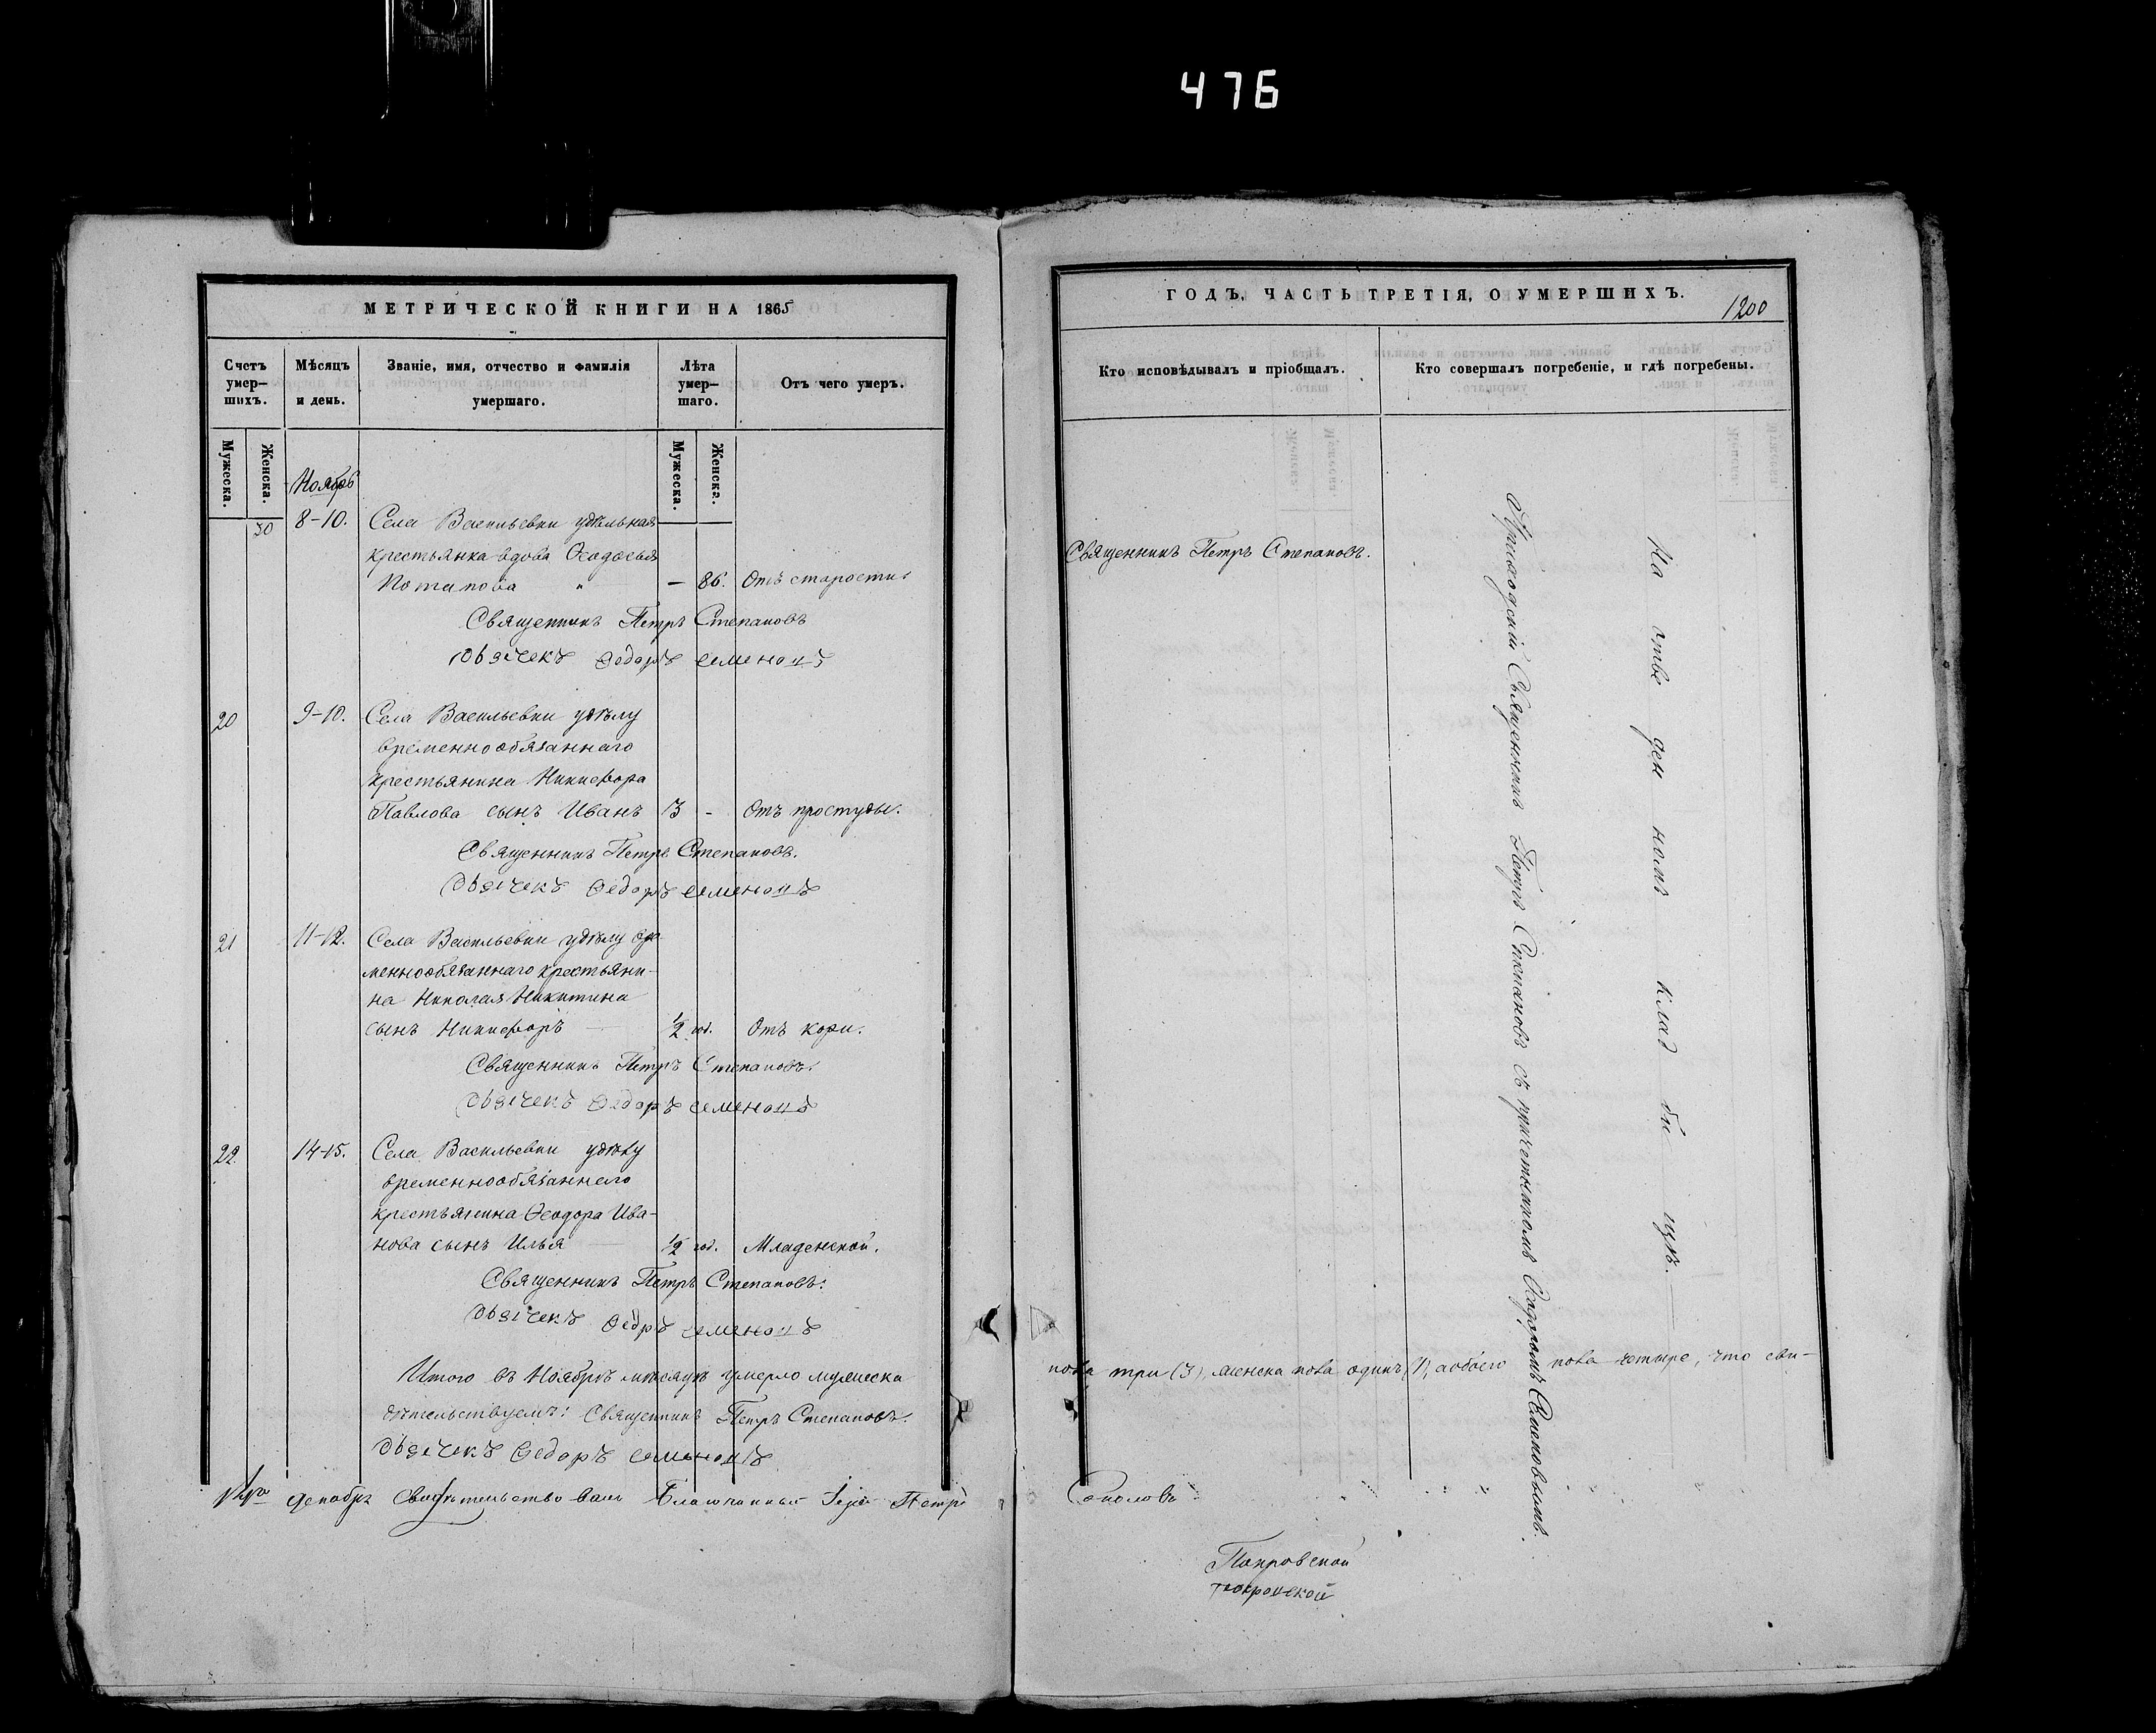 476
МЕТРИЧЕСКОЙ КНИГИ НА 1865
Счетъ умер-шихъ.
Мѣсяцъ и день.
Званіе, имя, отчество и фамилія умершаго.
Лѣта умер-шаго.
Отъ чего умеръ.
Мужеска.
Женска.
Мужеска.
Женска.
Ноябрь
30 8-10. Села Васильевки удѣльная
крестьянка вдова Ѳеодосья
Потапова " — 86. Отъ старости.
Священникъ Петръ Степановъ
Дьячекъ Ѳедоръ Семеновъ
20 9-10. Села Васильевки удѣлу
временнообязаннаго
крестьянина Никифора
Павлова сынъ Иванъ 13 - Отъ простуды.
Священникъ Петръ Степановъ.
Дьячекъ Ѳедоръ Семеновъ
21 11-12. Села Васильевки удѣлу вре
меннообязаннаго крестьяни-
на Николая Никитина
сынъ Никифоръ — 1/2 год. Отъ кори.
Священникъ Петръ Степановъ.
Дьячекъ Ѳедоръ Семеновъ
22. 14-15. Села Васильевки удѣлу
временнообязаннаго
крестьянина Ѳеодора Ива-
нова сынъ Илья — 1/2 год. Младенской.
Священникъ Петръ Степановъ.
Дьячекъ Ѳедръ Семеновъ
Итого въ Ноябрѣ мѣсяцѣ умерло мужеска
дѣтельствуемъ: Священникъ Петръ Степановъ.
Дьячекъ Ѳедоръ Семеновъ
Декабря свидѣтельствовалъ Благочинный Іерей Петръ
ГОДЪ, ЧАСТЬ ТРЕТІЯ, О УМЕРШИХЪ.
1200
Кто исповѣдывалъ и пріобщалъ.
Кто совершалъ погребеніе, и гдѣ погребены.
Священникъ Петръ Степановъ.
Приходскій Священникъ Петръ Степановъ съ причетникомъ Ѳеодоромъ Семеновымъ.
На отве ден номъ клад би щѣ.
пола три (3), женска пола одинъ (1), обоего пола четыре, что сви-
Соколовъ
Покровской
покровской